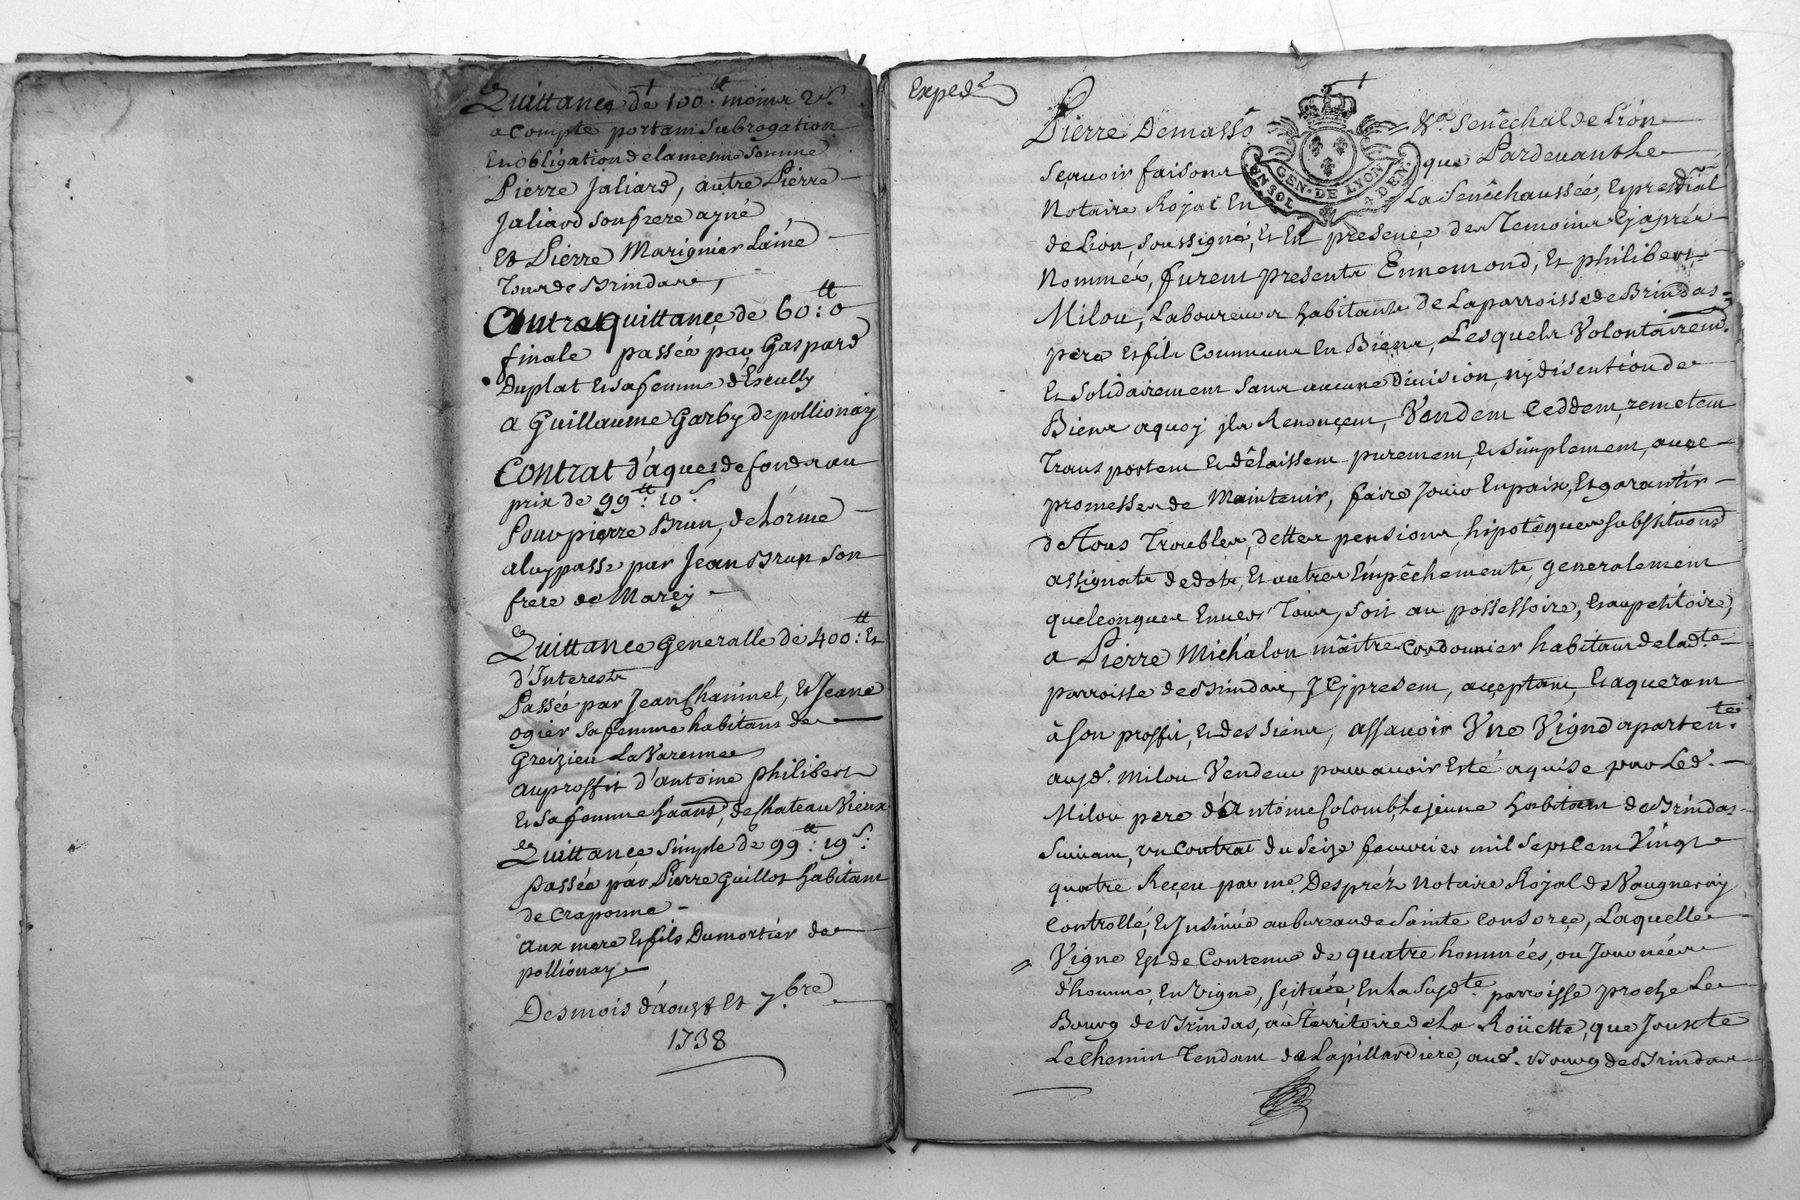 Quittance de 100.tt moins 2s
a Compte portant Subrogation
En obligation de la mesme Somme
Pierre Jaliard, autre Pierre
Jaliard son frere ayné
Et Pierre Marignier Lainé
Tous de Brindas,
Contrequittance de 60:tt
finale passée par Gaspard
Duplat Et sa femme d'Escully
a Guillaume Garby de pollionay
Contrat d'aquet de fonds au
prix de 99:tt 10.s
Pour pierre Brun, de Lorme
a luy passé par Jean Brun Son
frere de Marcy
Quittance Generalle de 400:tt Et
d'Interests
Passée par Jean Chammel, Et Jeane
ogier Sa femme habitans de
Greizieu La Varenne
au proffit d'antoine philibert
Et Sa femme de Chateau Vieux
Quittance Simple de 99:tt 19.s
passée par Pierre Guillot habitant
de Craponne
aux mere Et fils Dumortier de
pollionay
Des mois d'aoust Et 7.bre
1738
Exped.é
Pierre Demasso Sénêchal de Lion
Sçavoir faisons que Pardevant Le
GEN. DE LYON
UN SOL 4 DEN
Notaire Royal En La Senêchaussée, Et presidial
de Lion, Soussigné, Et En presence des Temoins Cy après
Nommés, furent presents Ennemond, Et philibert
Milou, Laboureurs habitants de La parroisse de Brindas
pere Et fils Communs En Biens, Lesquels Volontairem.t
Et Solidairement Sans aucune Division, ny disention de
Biens a quoy jls Renonçent, Vendent Ceddent, remetent
Transportent Et dêlaissent purement, Et Simplement, avec
promesse de Maintenir, faire Jouir En paix, Et garantir
de Tous Troubles, dettes pensions, hipotêques Substitutions
assignats de dots, Et autres Empêchements generalement
quelconques Envers Tous, Soit au possessoire, Et au petitoire,
a Pierre Michalon mâitre Cordonnier habitant de lad.te
parroisse de Brindas, Jcy present, acceptant, Et aquerant
à Son proffit, Et des Siens, assavoir Une Vigne aparten.te
aux d. Milou Vendeurs pour avoir Esté aquise par Led.
Milou pere d'Antoine Colomb, Le jeune habitant de Brindas
Suivant, un Contrat du Seize fevrier mil Sept Cent Vingt
quatre Reçeu par m.e Desprèz Notaire Royal de Vaugneray
Controllé, Et Insinué au bureau de Sainte Consorçe, Laquelle
Vigne Est de Contenue de quatre hommées, ou Journées
d'homme, En Vigne, Scituée, En La Susd.te parroisse proche Le
Bourg de Brindas, au Territoire de La Roüette, que Jouxte
Le Chemin Tendant de Lapillardiere, aud. Bourg de Brindas